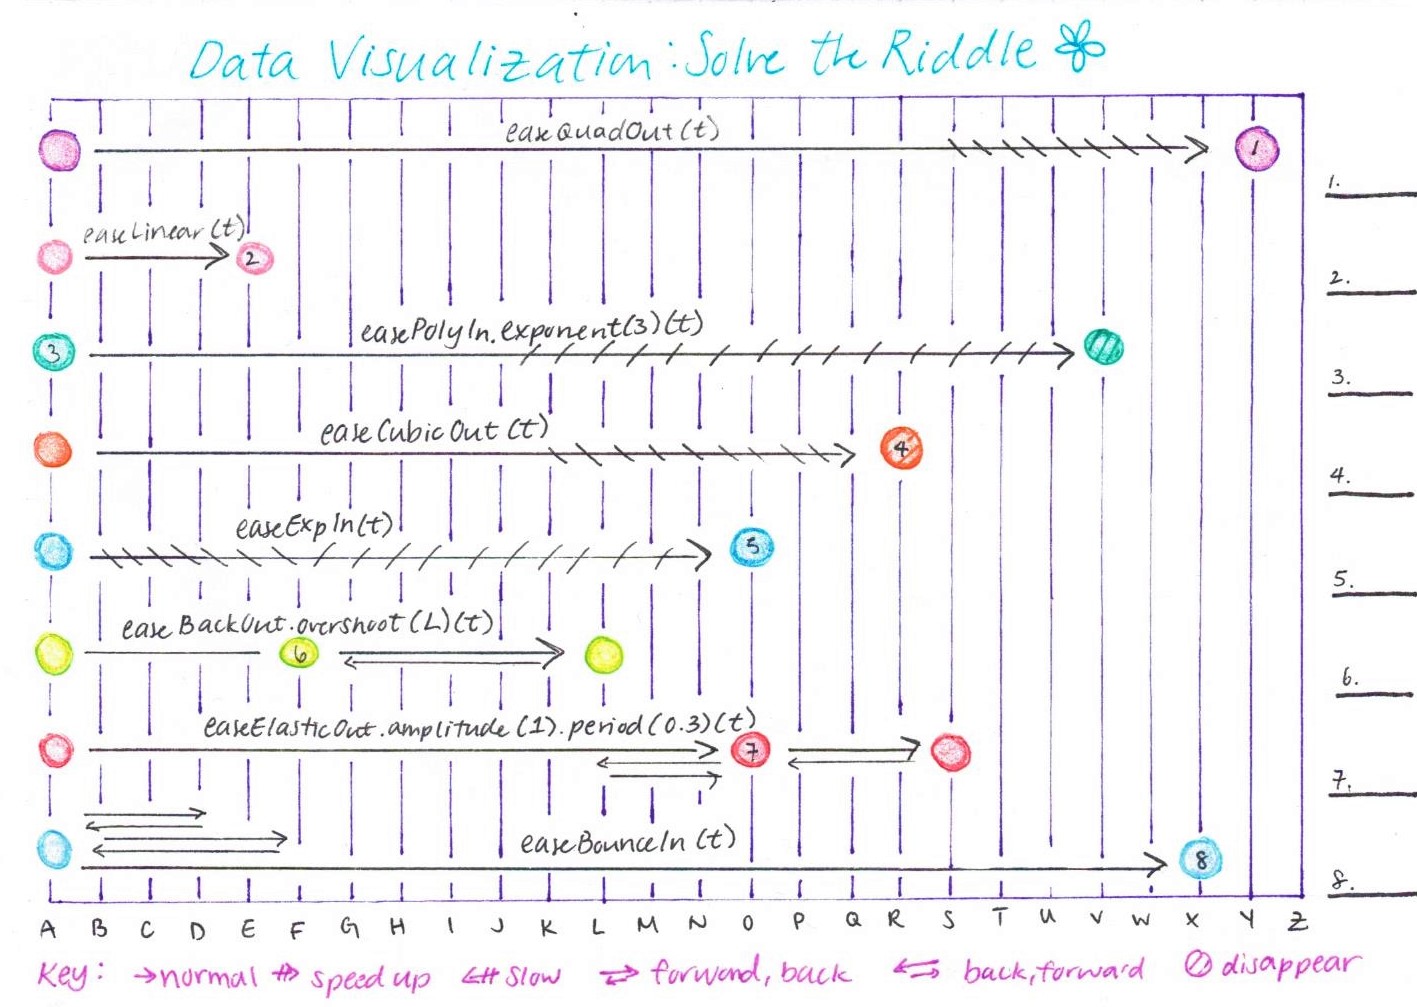 Data Visualization: Solve the Riddle
easeQuadOut(t)
1
1.
easeLinear(t)
2
2.
easePolyIn.exponent(3)(t)
3
3.
easeCubicOut(t)
4
4.
easeExpIn(t)
5
5.
easeBackOut.overshoot(L)(t)
6
6.
easeElasticOut.amplitude(1).period(0.3)(t)
7
7.
easeBounceIn(t)
8
8.
A B C D E F G H I J K L M N O P Q R S T U V W X Y Z
Key: → normal ⇻ speed up ⇺ slow ⇄ forward, back ⇆ back, forward ⊘ disappear